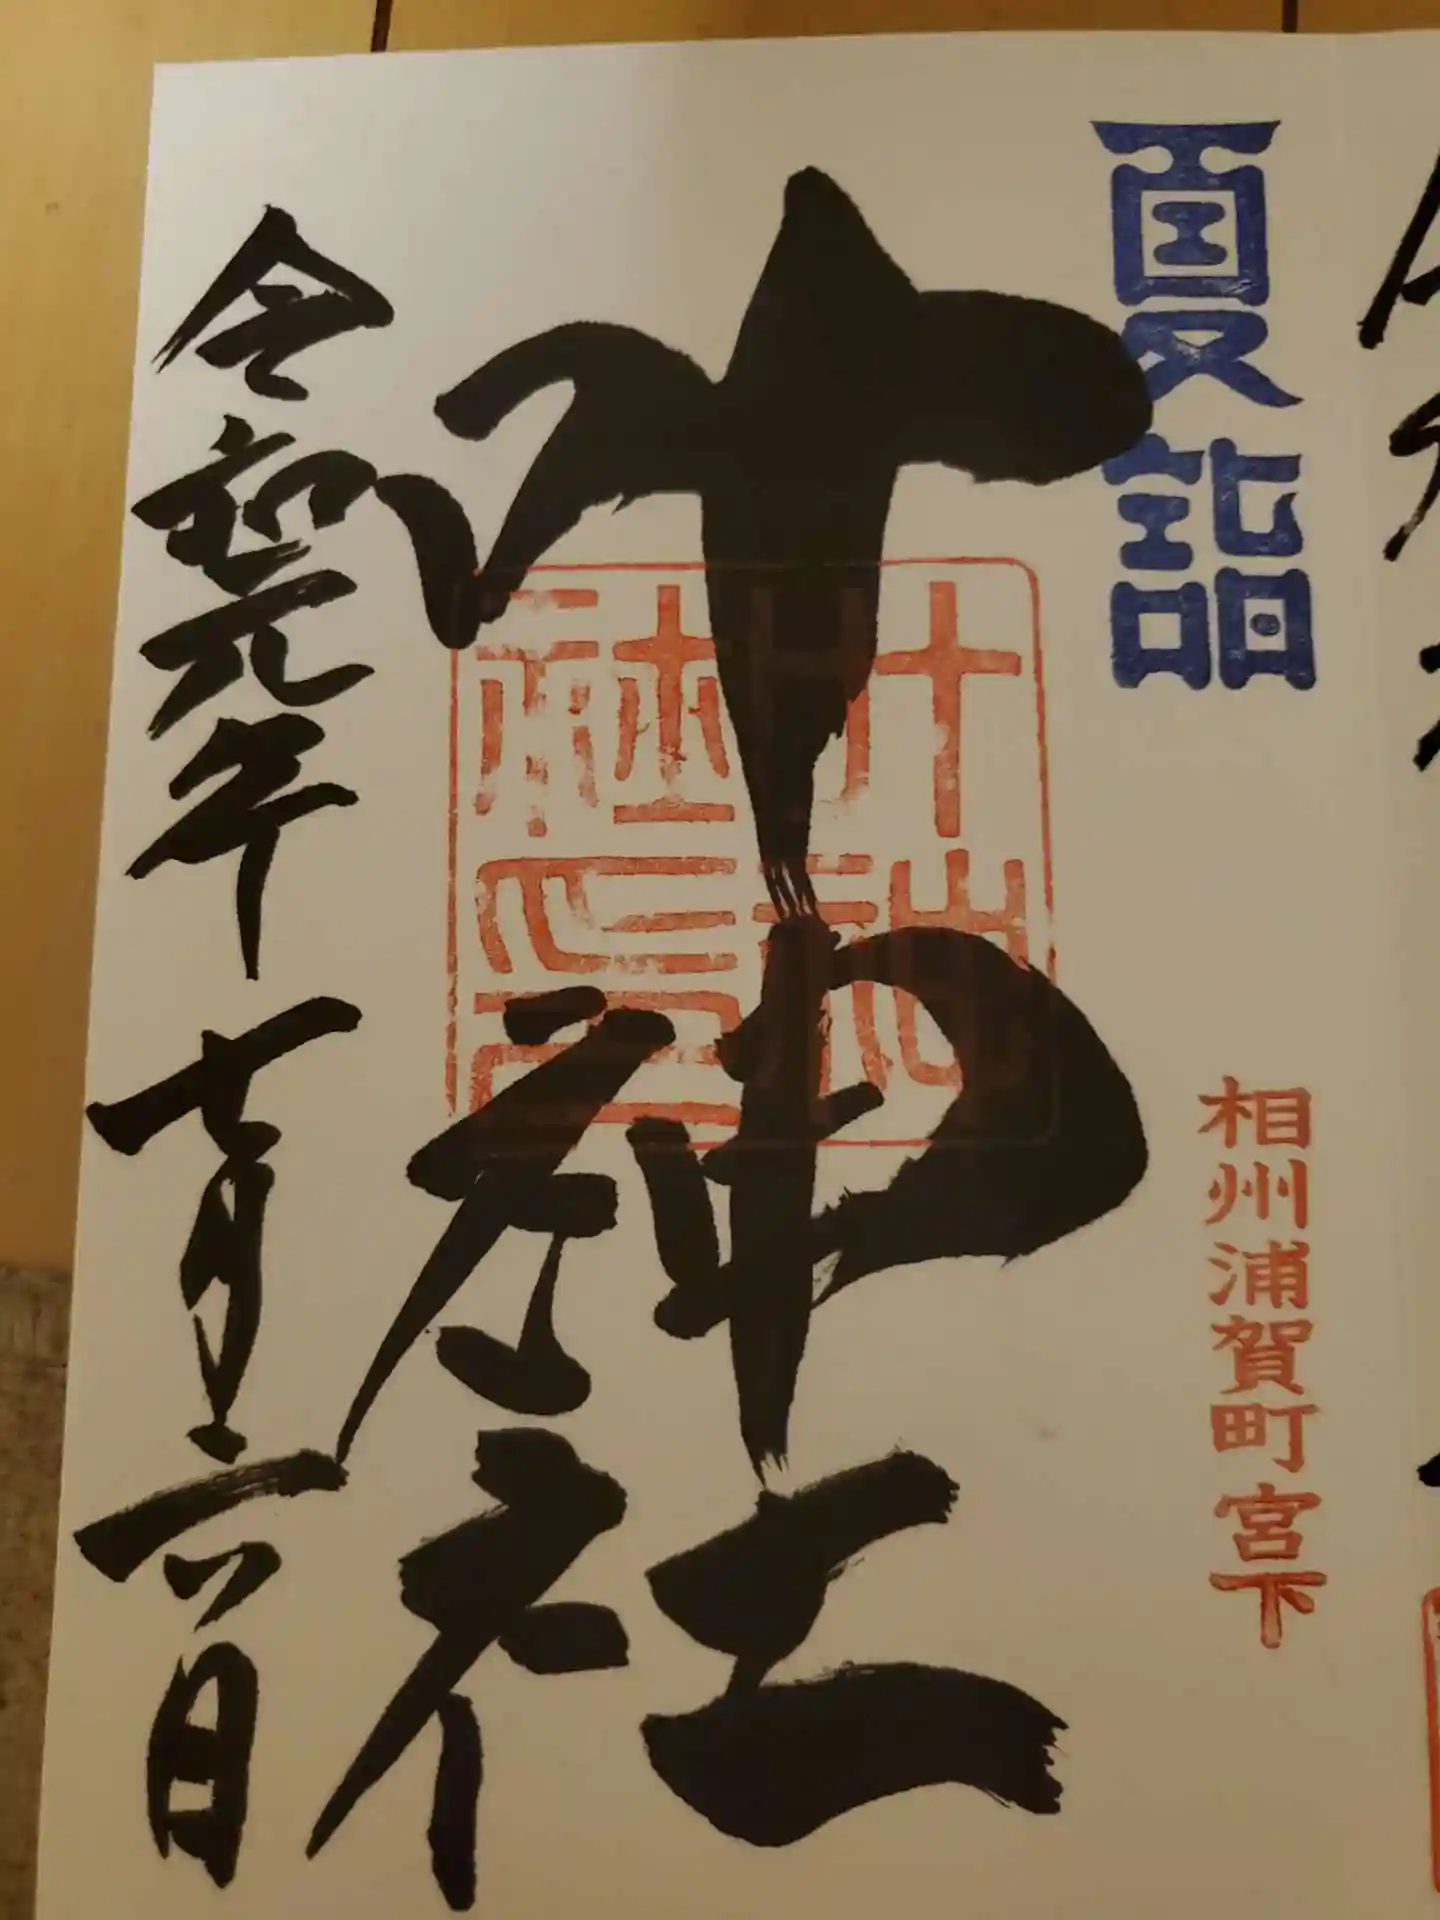 夏詣
相州浦賀町宮下
叶神社
叶神
社印
令和元年七月六日